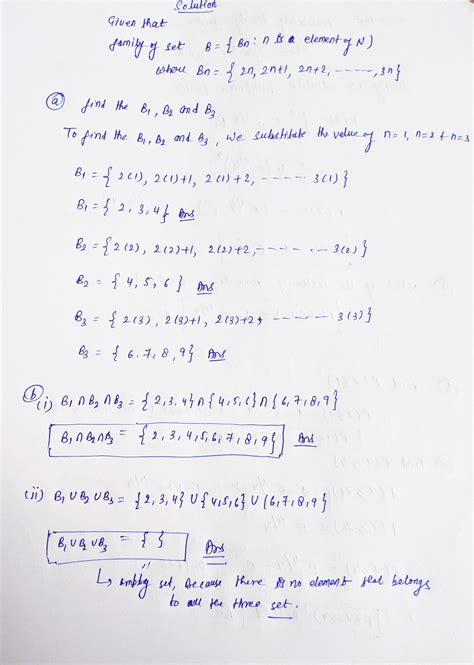 Solution
Given that
family of set B = { Bn : n is a element of N )
where Bn = { 2n, 2n+1, 2n+2, ------, 3n}
(a) find the B1, B2 and B3
To find the B1, B2 and B3, we substitute the value of n=1, n=2 + n=3
B1 = { 2(1), 2(1)+1, 2(1)+2, ------ 3(1)}
B1 = { 2, 3, 4} Ans
B2 = { 2(2), 2(2)+1, 2(2)+2, ------ 3(2)}
B2 = { 4, 5, 6 } Ans
B3 = { 2(3), 2(3)+1, 2(3)+2, ------ 3(3)}
B3 = { 6, 7, 8, 9} Ans
(b)
(i) B1 ∩ B2 ∩ B3 = { 2, 3, 4} ∩ {4, 5, 6} ∩ {6, 7, 8, 9}
B1 ∩ B2 ∩ B3 = { 2, 3, 4, 5, 6, 7, 8, 9} Ans
(ii) B1 ∪ B2 ∪ B3 = { 2, 3, 4} ∪ {4, 5, 6} ∪ {6, 7, 8, 9}
B1 ∪ B2 ∪ B3 = { } Ans
↳ empty set, because there is no element that belongs
to all the three set.